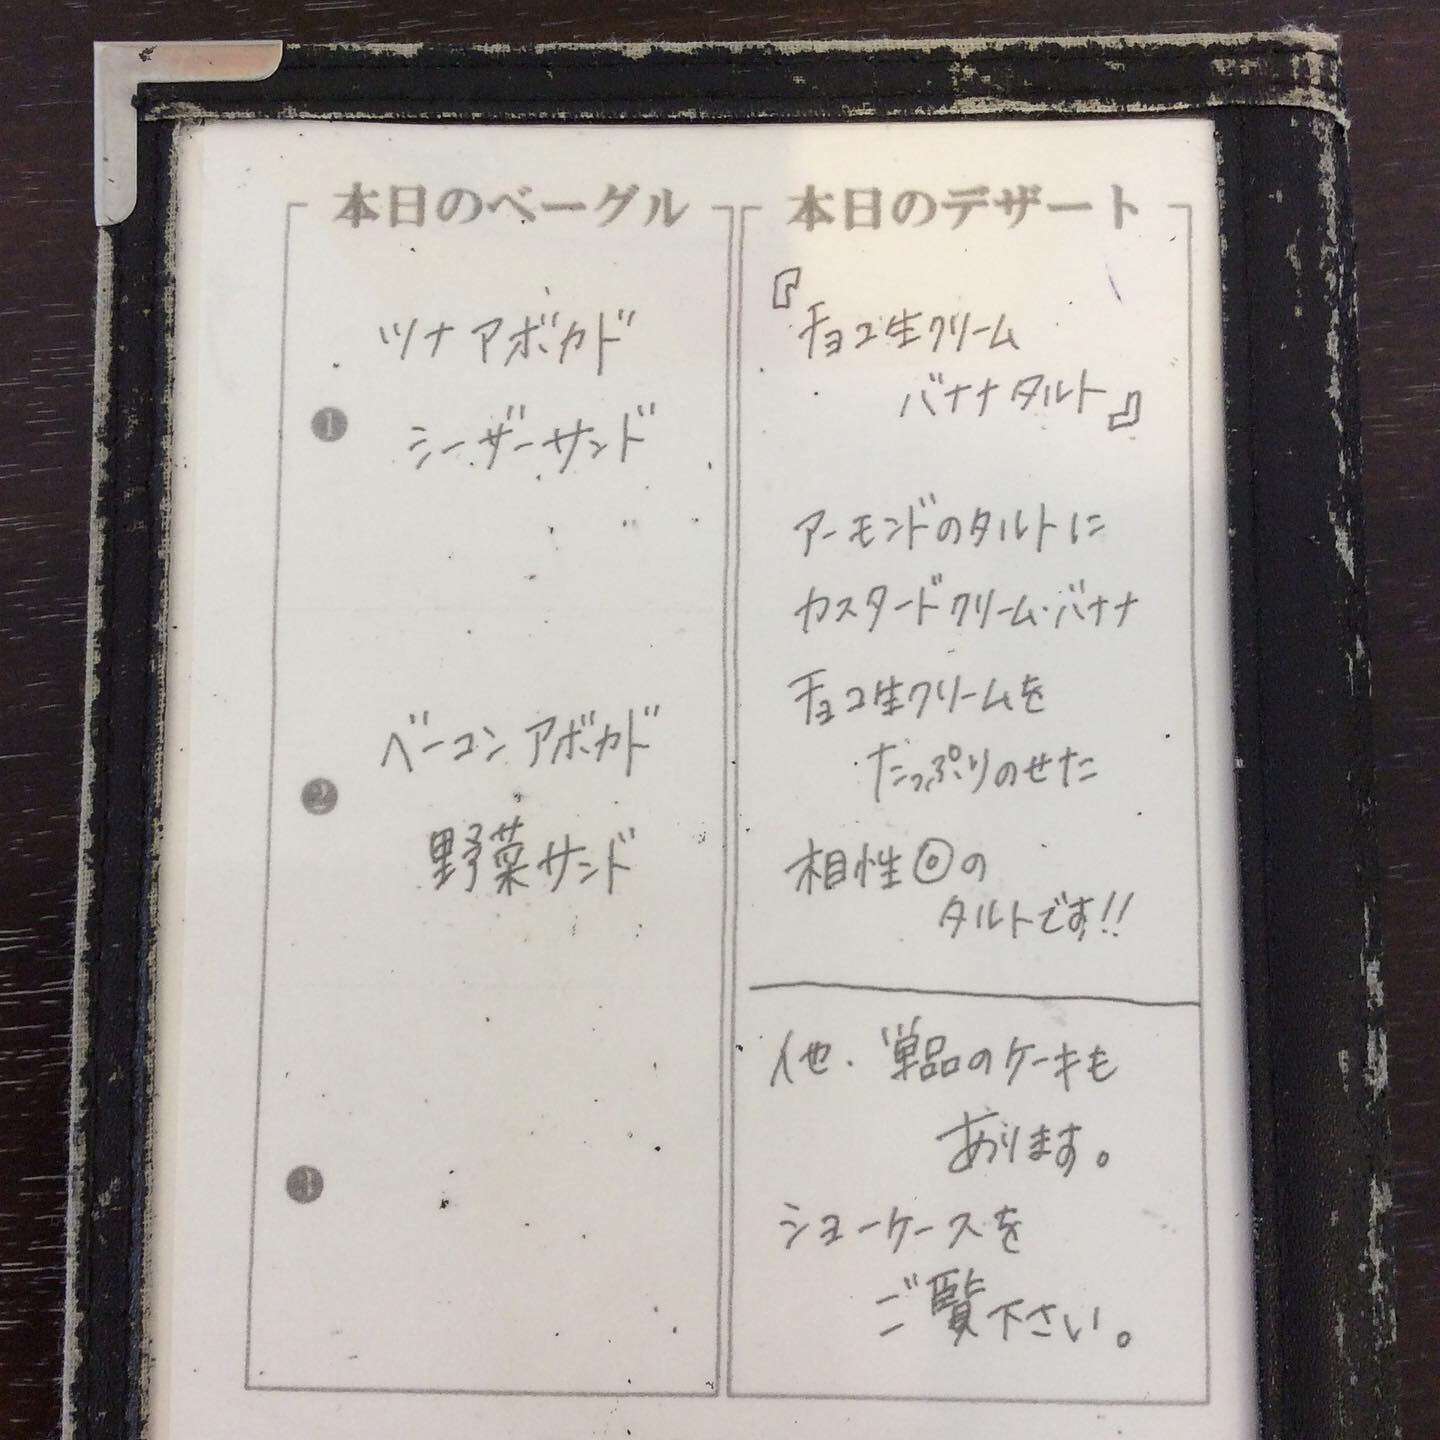 本日のベーグル
ツナアボカド
1
シーザーサンド
ベーコンアボカド
2
野菜サンド
3
本日のデザート
『チョコ生クリーム
バナナタルト』
アーモンドのタルトに
カスタードクリーム・バナナ
チョコ生クリームを
たっぷりのせた
相性◎の
タルトです!!
他、単品のケーキも
あります。
ショーケースを
ご覧下さい。